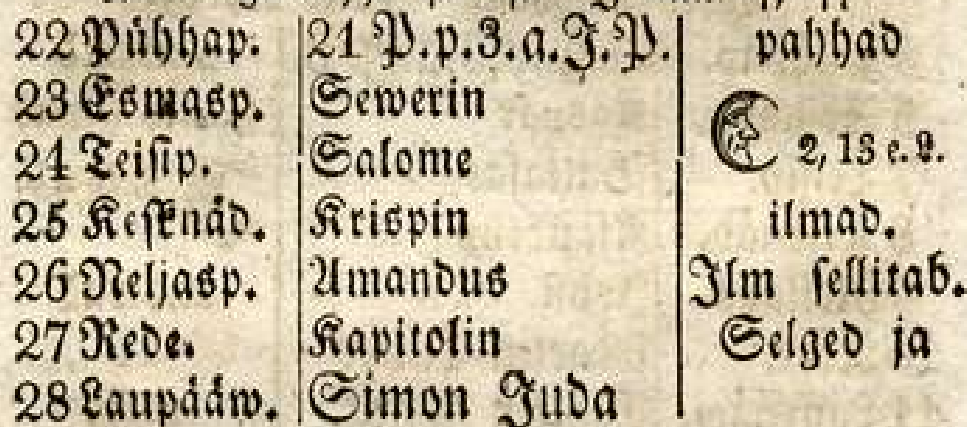 22 Pühhap. 21 P.p.3.a.J.P. pahhad
23 Esmasp. Sewerin
24 Teisip. Salome 2, 13 e. L.
25 Kesknäd. Krispin ilmad.
26 Neljasp. Amandus Ilm sellitab.
27 Rede. Kapitolin Selged ja
28 Laupääw. Simon Juda